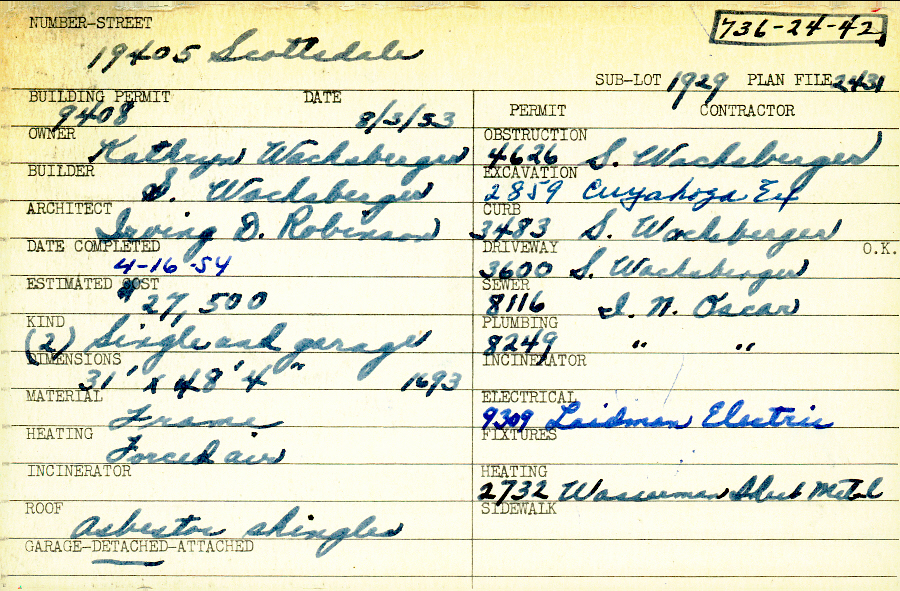 NUMBER-STREET
736-24-42
19405 Scottsdale
SUB-LOT 1929 PLAN FILE 2431
BUILDING PERMIT DATE
9408 8/3/53
OWNER
Kathryn Wachsberger
BUILDER
S. Wachsberger
ARCHITECT
Irving D. Robinson
DATE COMPLETED
4-16-54
ESTIMATED COST
$27,500
KIND
(2) Single and garage
DIMENSIONS
31' x 48' 4" 1693
MATERIAL
Frame
HEATING
Forced air
INCINERATOR
ROOF
Asbestos shingles
GARAGE-DETACHED-ATTACHED
PERMIT CONTRACTOR
OBSTRUCTION
4626 S. Wachsberger
EXCAVATION
2859 Cuyahoga Ex
CURB
3483 S. Wachsberger
DRIVEWAY O.K.
3600 S. Wachsberger
SEWER
8116 I. N. Oscar
PLUMBING
8249 " "
INCINERATOR
ELECTRICAL
9309 Laidman Electric
FIXTURES
HEATING
2732 Wasserman Sheet Metal
SIDEWALK